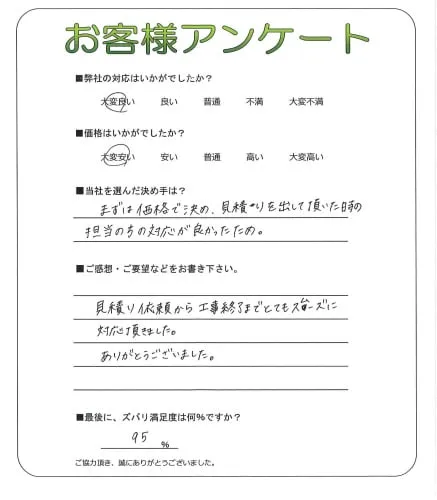 お客様アンケート
■弊社の対応はいかがでしたか?
大変良い 良い 普通 不満 大変不満
■価格はいかがでしたか?
大変安い 安い 普通 高い 大変高い
■当社を選んだ決め手は?
まずは価格で決め、見積りを出して頂いた時の
担当の方の対応が良かったため。
■ご感想・ご要望などをお書き下さい。
見積り依頼から工事終了までとてもスムーズに
対応頂きました。
ありがとうございました。
■最後に、ズバリ満足度は何%ですか?
95 %
ご協力頂き、誠にありがとうございました。